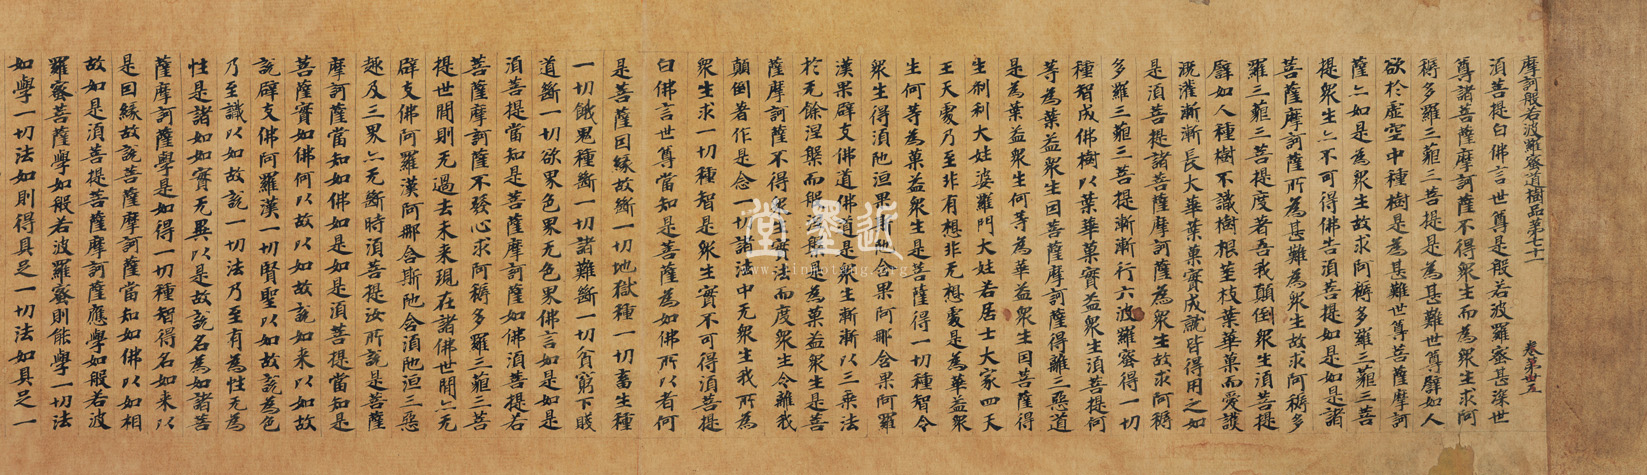 摩訶般若波羅蜜道樹品第七十一　卷第卅五
須菩提白佛言世尊是般若波羅蜜甚深世
尊諸菩薩摩訶薩不得衆生而為衆生求阿
耨多羅三藐三菩提是為甚難世尊譬如人
欲於虛空中種樹是為甚難世尊菩薩摩訶
薩亦如是為衆生故求阿耨多羅三藐三菩
提衆生亦不可得佛告須菩提如是如是諸
菩薩摩訶薩所為甚難為衆生故求阿耨多
羅三藐三菩提度著吾我顛倒衆生須菩提
譬如人種樹不識樹根莖枝葉華菓而愛護
溉灌漸漸長大華葉菓實成就皆得用之如
是須菩提諸菩薩摩訶薩為衆生故求阿耨
多羅三藐三菩提漸漸行六波羅蜜得一切
種智成佛樹以葉華菓實益衆生須菩提何
等為葉益衆生因菩薩摩訶薩得離三惡道
是為葉益衆生何等為華益衆生因菩薩得
生剎利大姓婆羅門大姓若居士大家四天
王天處乃至非有想非无想處是為華益衆
生何等為菓益衆生是菩薩得一切種智令
衆生得須陁洹果斯陁含果阿那含果阿羅
漢果辟支佛道佛道是衆生漸漸以三乘法
於无餘涅槃而般涅槃是為菓益衆生是菩
薩摩訶薩不得衆生實法而度衆生令離我
顛倒著作是念一切諸法中无衆生我所為
衆生求一切種智是衆生實不可得須菩提
白佛言世尊當知是菩薩為如佛所以者何
是菩薩因緣故斷一切地獄種一切畜生種
一切餓鬼種斷一切諸難斷一切貧窮下賤
道斷一切欲界色界无色界佛言如是如是
須菩提當知是菩薩摩訶薩如佛須菩提若
菩薩摩訶薩不發心求阿耨多羅三藐三菩
提世間則无過去未來現在諸佛世間亦无
辟支佛阿羅漢阿那含斯陁含須陁洹三惡
趣及三界亦无斷時須菩提汝所說是菩薩
摩訶薩當知如佛如是如是須菩提當知是
菩薩實如佛何以故以如故說如来以如故
說辟支佛阿羅漢一切賢聖以如故說為色
乃至識以如故說一切法乃至有為性无為
性是諸如如實无異以是故說名為如諸菩
薩摩訶薩學是如得一切種智得名如来以
是因緣故說菩薩摩訶薩當知如佛以如相
故如是須菩提菩薩摩訶薩應學如般若波
羅蜜菩薩學如般若波羅蜜則能學一切法
如學一切法如則得具足一切法如具足一
近墨堂